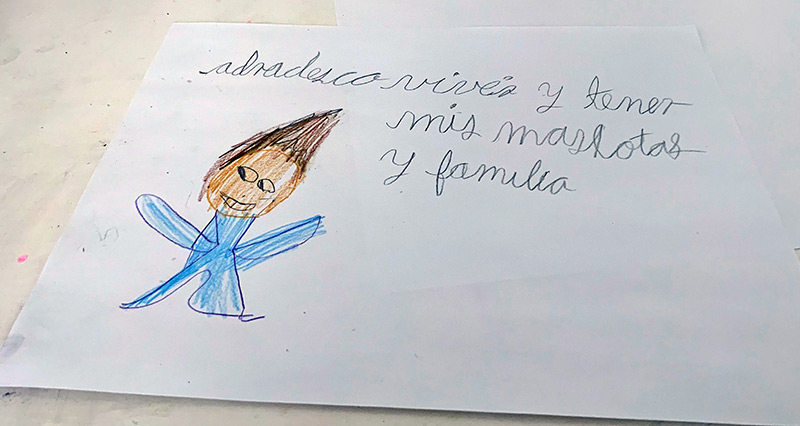 adradesco vivir y tener
mis maskotas
y familia